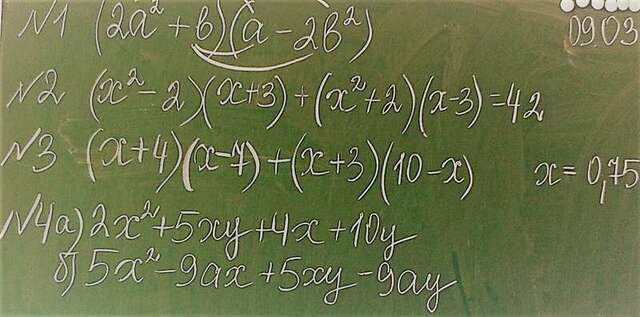 №1 (2a² + b)(a - 2b²) 09.03
№2 (x² - 2)(x + 3) + (x² + 2)(x - 3) = 42
№3 (x + 4)(x - 7) + (x + 3)(10 - x) x = 0,75
№4 а) 2x² + 5xy + 4x + 10y
б) 5x² - 9ax + 5xy - 9ay